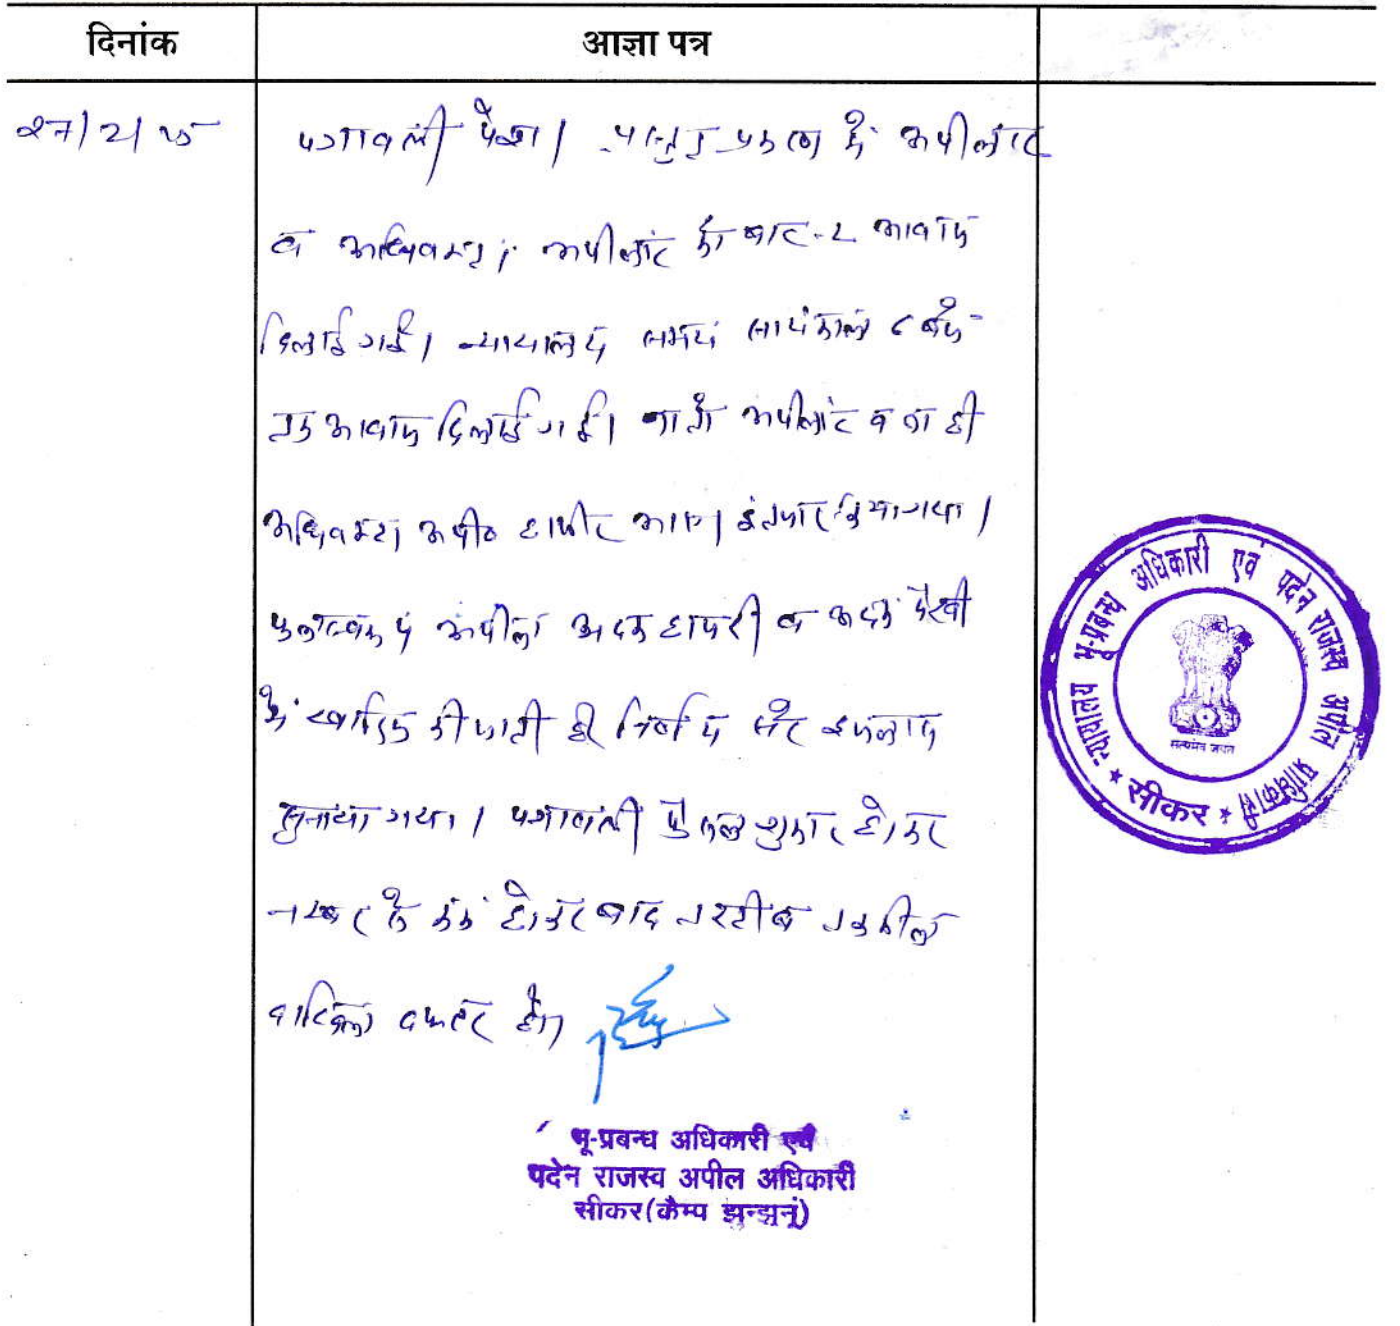 दिनांक
आज्ञा पत्र
27/2/25
पत्रावली पेश। प्रस्तुत प्रकरण में अपीलांट
व अधिवक्ता अपीलांट को बार-2 आवाज
दिलाई गई। न्यायालय समय सायंकाल 6 बजे
तक आवाज दिलाई गई। ना तो अपीलांट व ना ही
अधिवक्ता अपी० हाजीर आए। इंतजार किया गया।
फलस्वरूप अपील अदम हाजरी व अदम पैरवी
में खारिज की जाती है। निर्णय सरे इजलास
सुनाया गया। पत्रावली फैसल शुमार होकर
नम्बर से कम होकर बाद तरतीब तकमील
दाखिल दफ्तर हो।
भू-प्रबन्ध अधिकारी एवं
पदेन राजस्व अपील अधिकारी
सीकर(कैम्प झुन्झुनूं)
न्यायालय भू-प्रबन्ध अधिकारी एवं पदेन राजस्व अपील प्राधिकारी
सत्यमेव जयते
* सीकर *